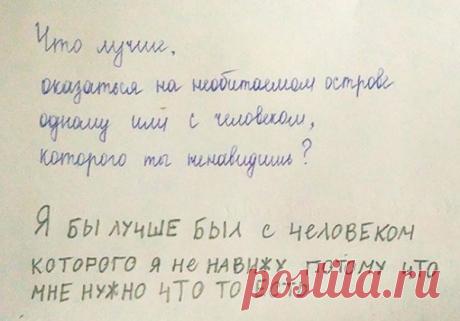 Что лучше,
оказаться на необитаемом острове
одному или с человеком,
которого ты ненавидишь?
Я БЫ ЛУЧШЕ БЫЛ С ЧЕЛОВЕКОМ
КОТОРОГО Я НЕ НАВИЖУ ПОТОМУ ЧТО
МНЕ НУЖНО ЧТО ТО ЕСТЬ
postila.ru